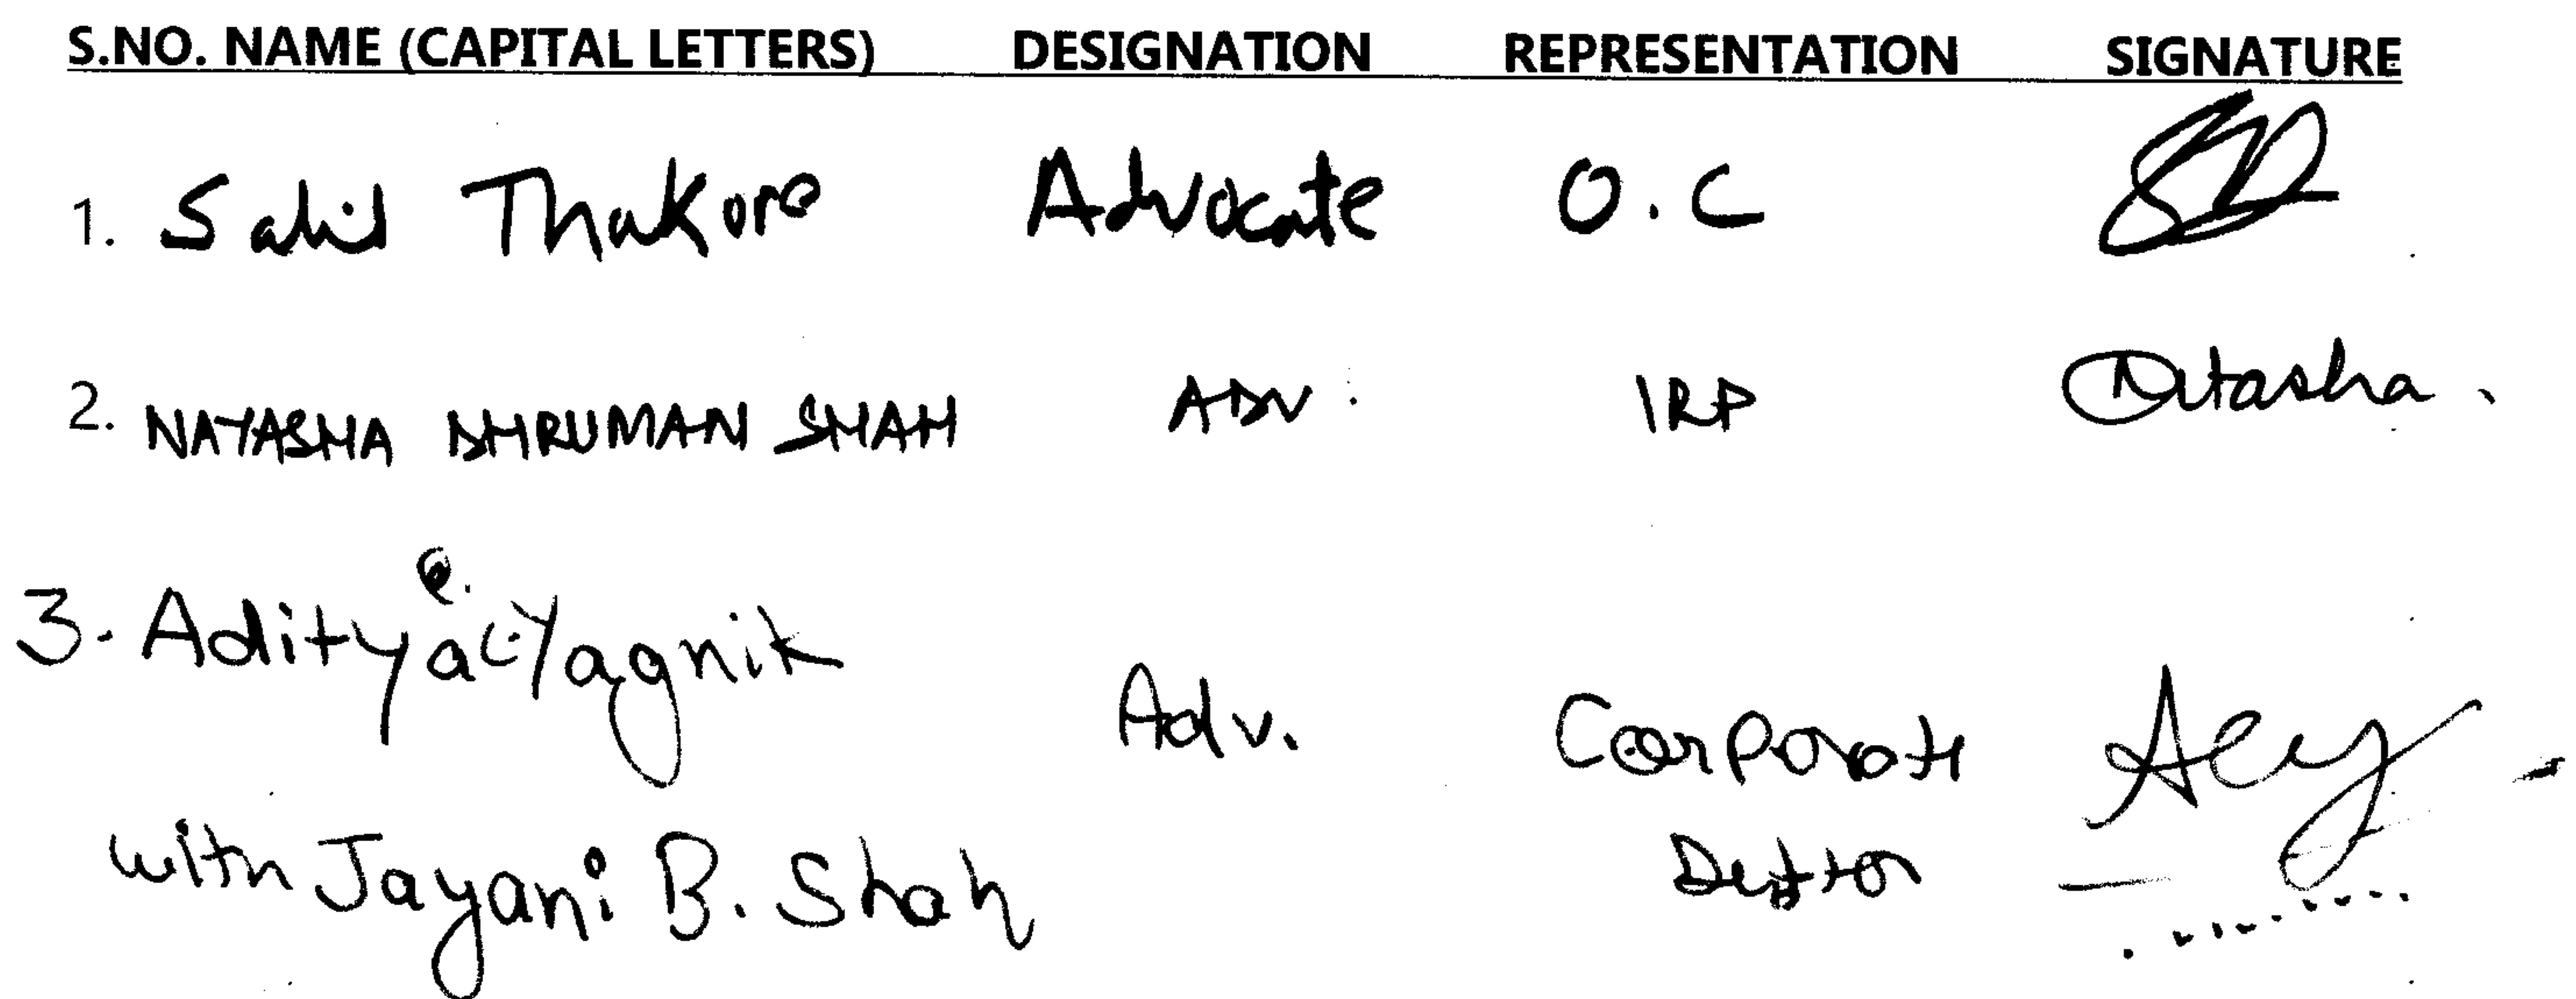 S.NO. NAME (CAPITAL LETTERS) DESIGNATION REPRESENTATION SIGNATURE
1. Sahil Thakore Advocate O.C
2. NATASHA DHRUMAN SHAH ADV. IRP Natasha.
3. Aditya Yagnik
Adv. Corporate
with Jayani B. Shah Debtor